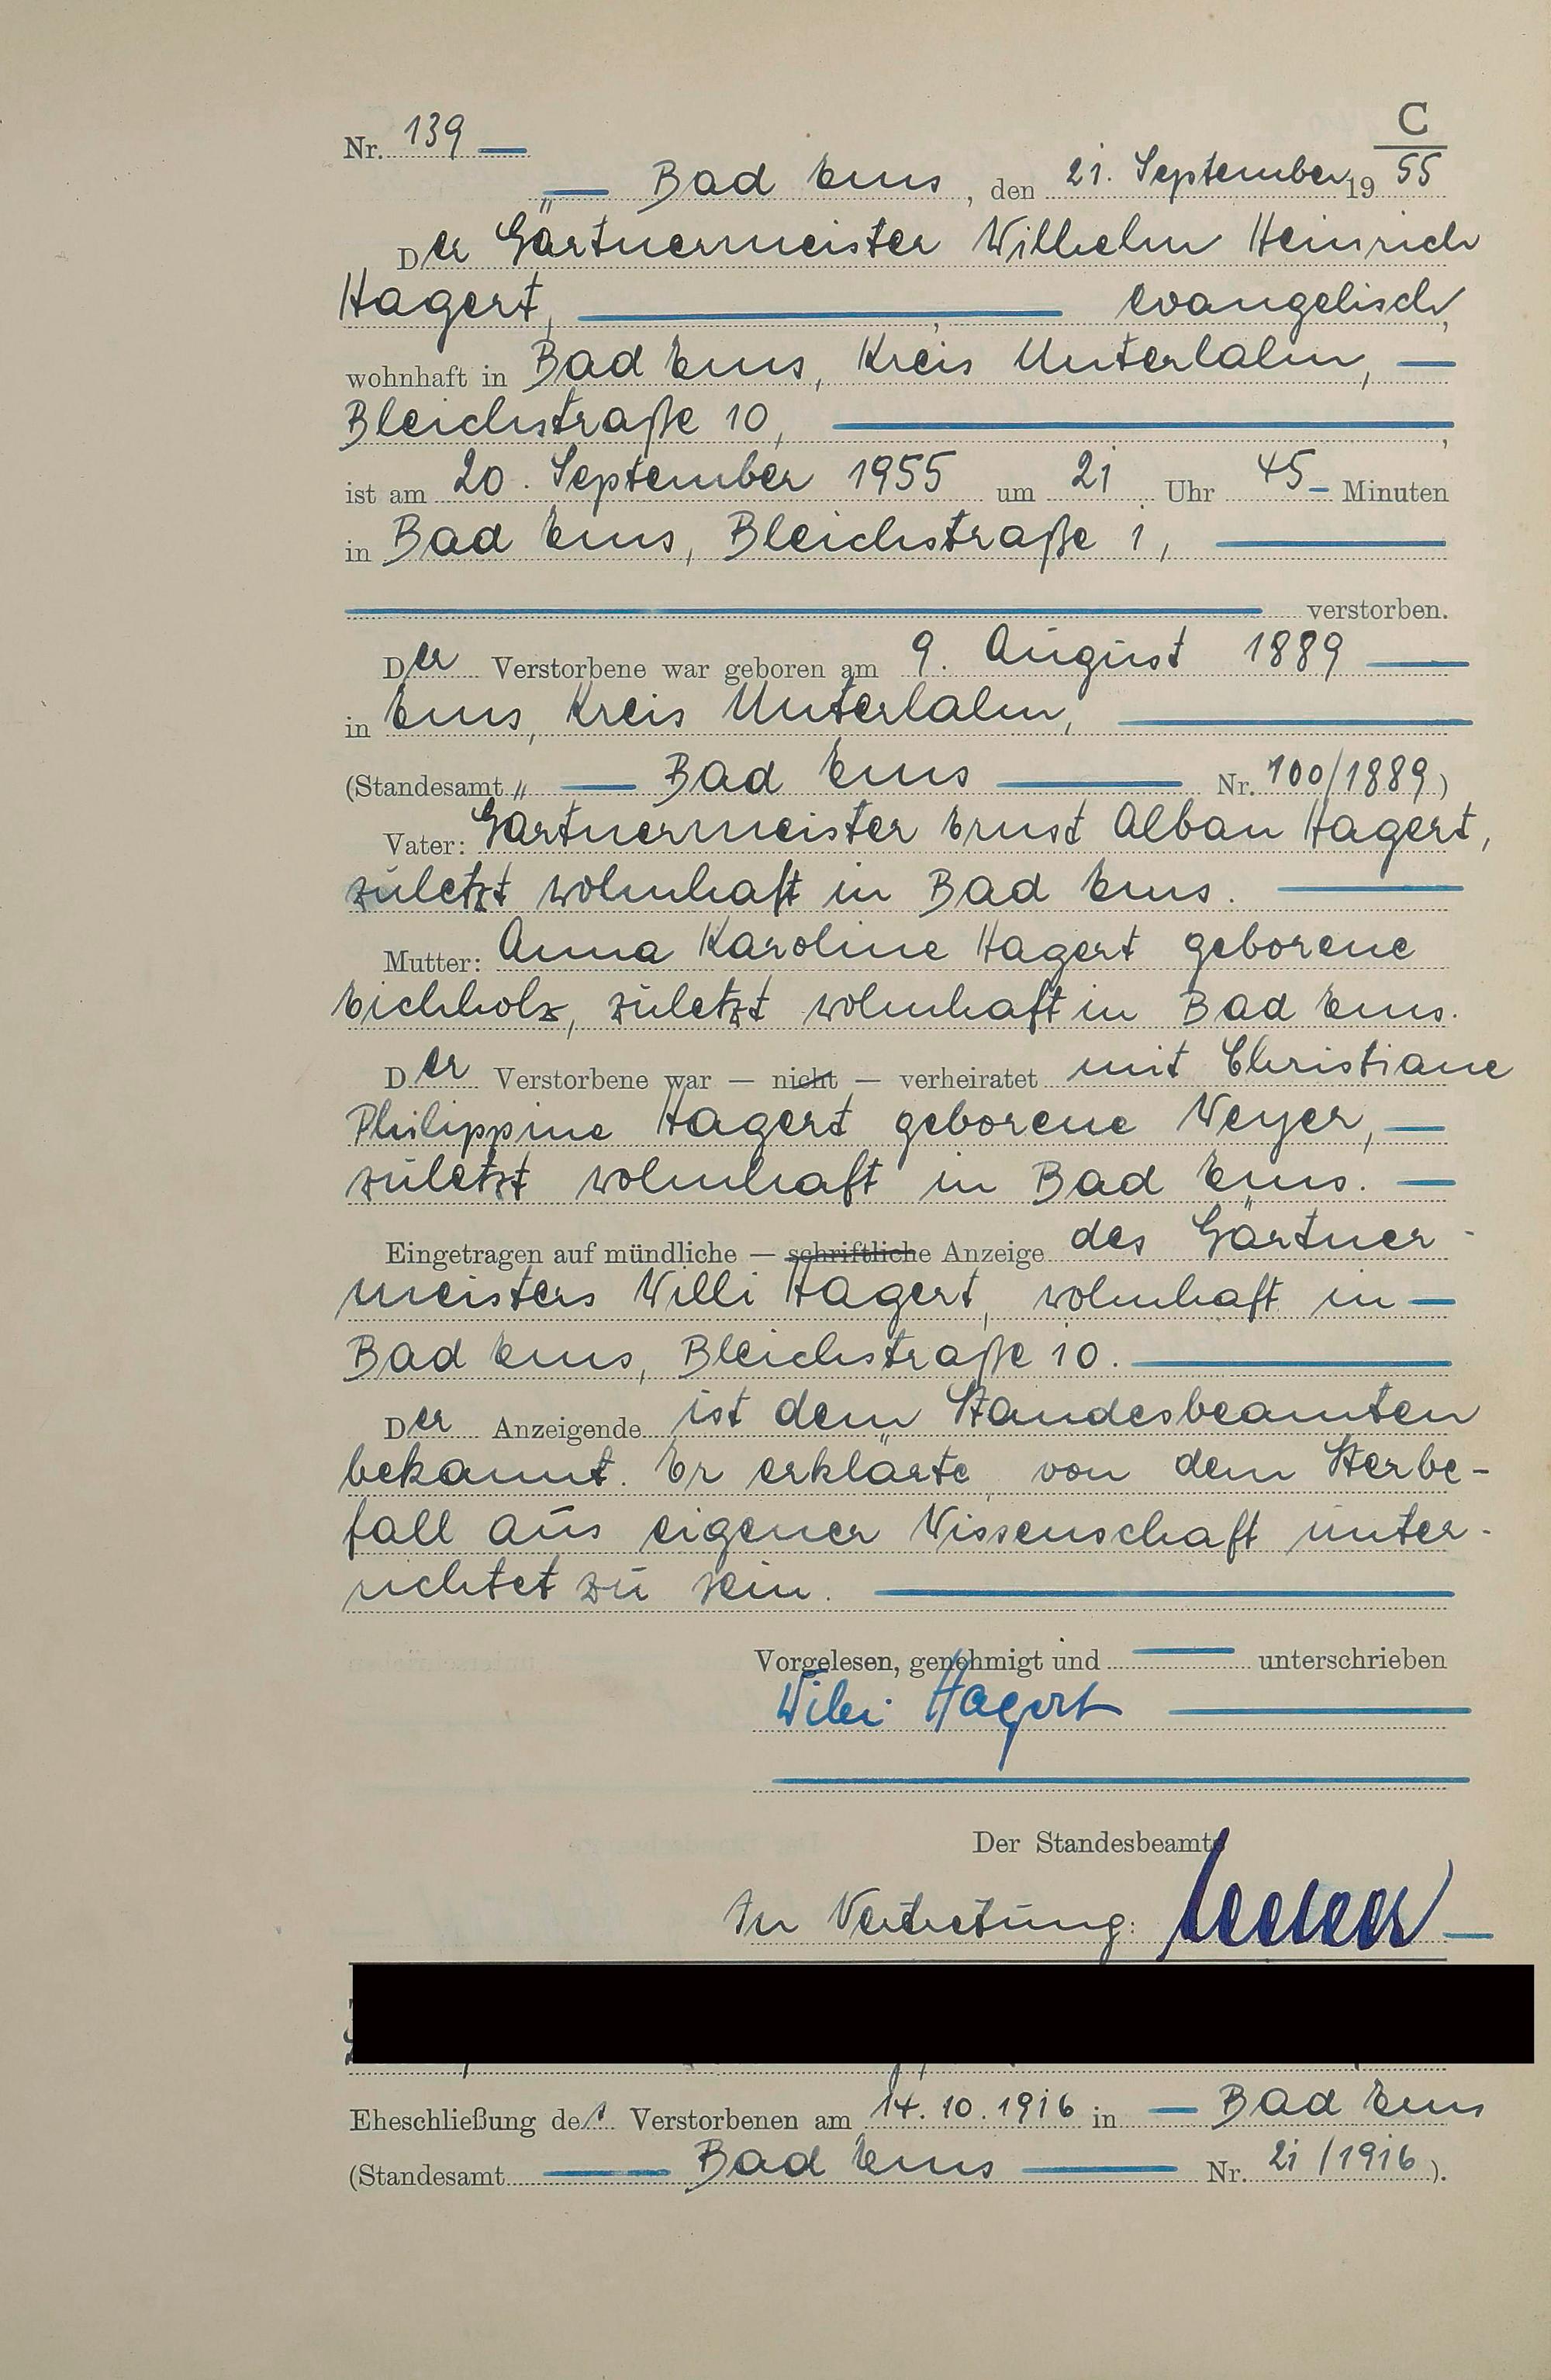 C
Nr. 139
Bad Ems, den 21. September 1955
Der Gärtnermeister Wilhelm Heinrich
Hagert, evangelisch,
wohnhaft in Bad Ems, Kreis Unterlahn,
Bleichstraße 10,
ist am 20. September 1955 um 21 Uhr 45 Minuten
in Bad Ems, Bleichstraße 1,
verstorben.
Der Verstorbene war geboren am 9. August 1889
in Ems, Kreis Unterlahn,
(Standesamt Bad Ems Nr. 100/1889)
Vater: Gärtnermeister Ernst Alban Hagert,
zuletzt wohnhaft in Bad Ems.
Mutter: Anna Karoline Hagert geborene
Eichholz, zuletzt wohnhaft in Bad Ems.
Der Verstorbene war — nicht — verheiratet mit Christiane
Philippine Hagert geborene Weyer,
zuletzt wohnhaft in Bad Ems.
Eingetragen auf mündliche — schriftliche Anzeige des Gärtner-
meisters Willi Hagert, wohnhaft in
Bad Ems, Bleichstraße 10.
Der Anzeigende ist dem Standesbeamten
bekannt. Er erklärte, von dem Sterbe-
fall aus eigener Wissenschaft unter-
richtet zu sein.
Vorgelesen, genehmigt und unterschrieben
Willi Hagert
Der Standesbeamte
In Vertretung:
Eheschließung des Verstorbenen am 14.10.1916 in Bad Ems
(Standesamt Bad Ems Nr. 21/1916).